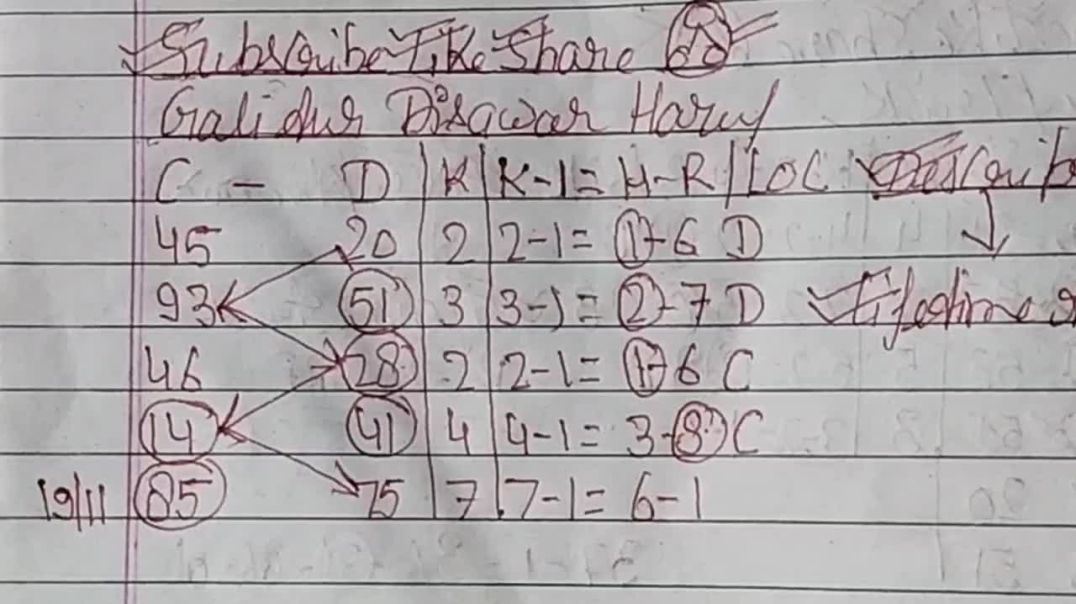 Subscribe Like Share
Galidur Disawar Haruf
C - D | K | K-1 = H-R | LOC
45 20 2 2-1 = 1-6 D
93 51 3 3-1 = 2-7 D
46 28 2 2-1 = 1-6 C
14 41 4 4-1 = 3-8 C
19/11 85 75 7 7-1 = 6-1